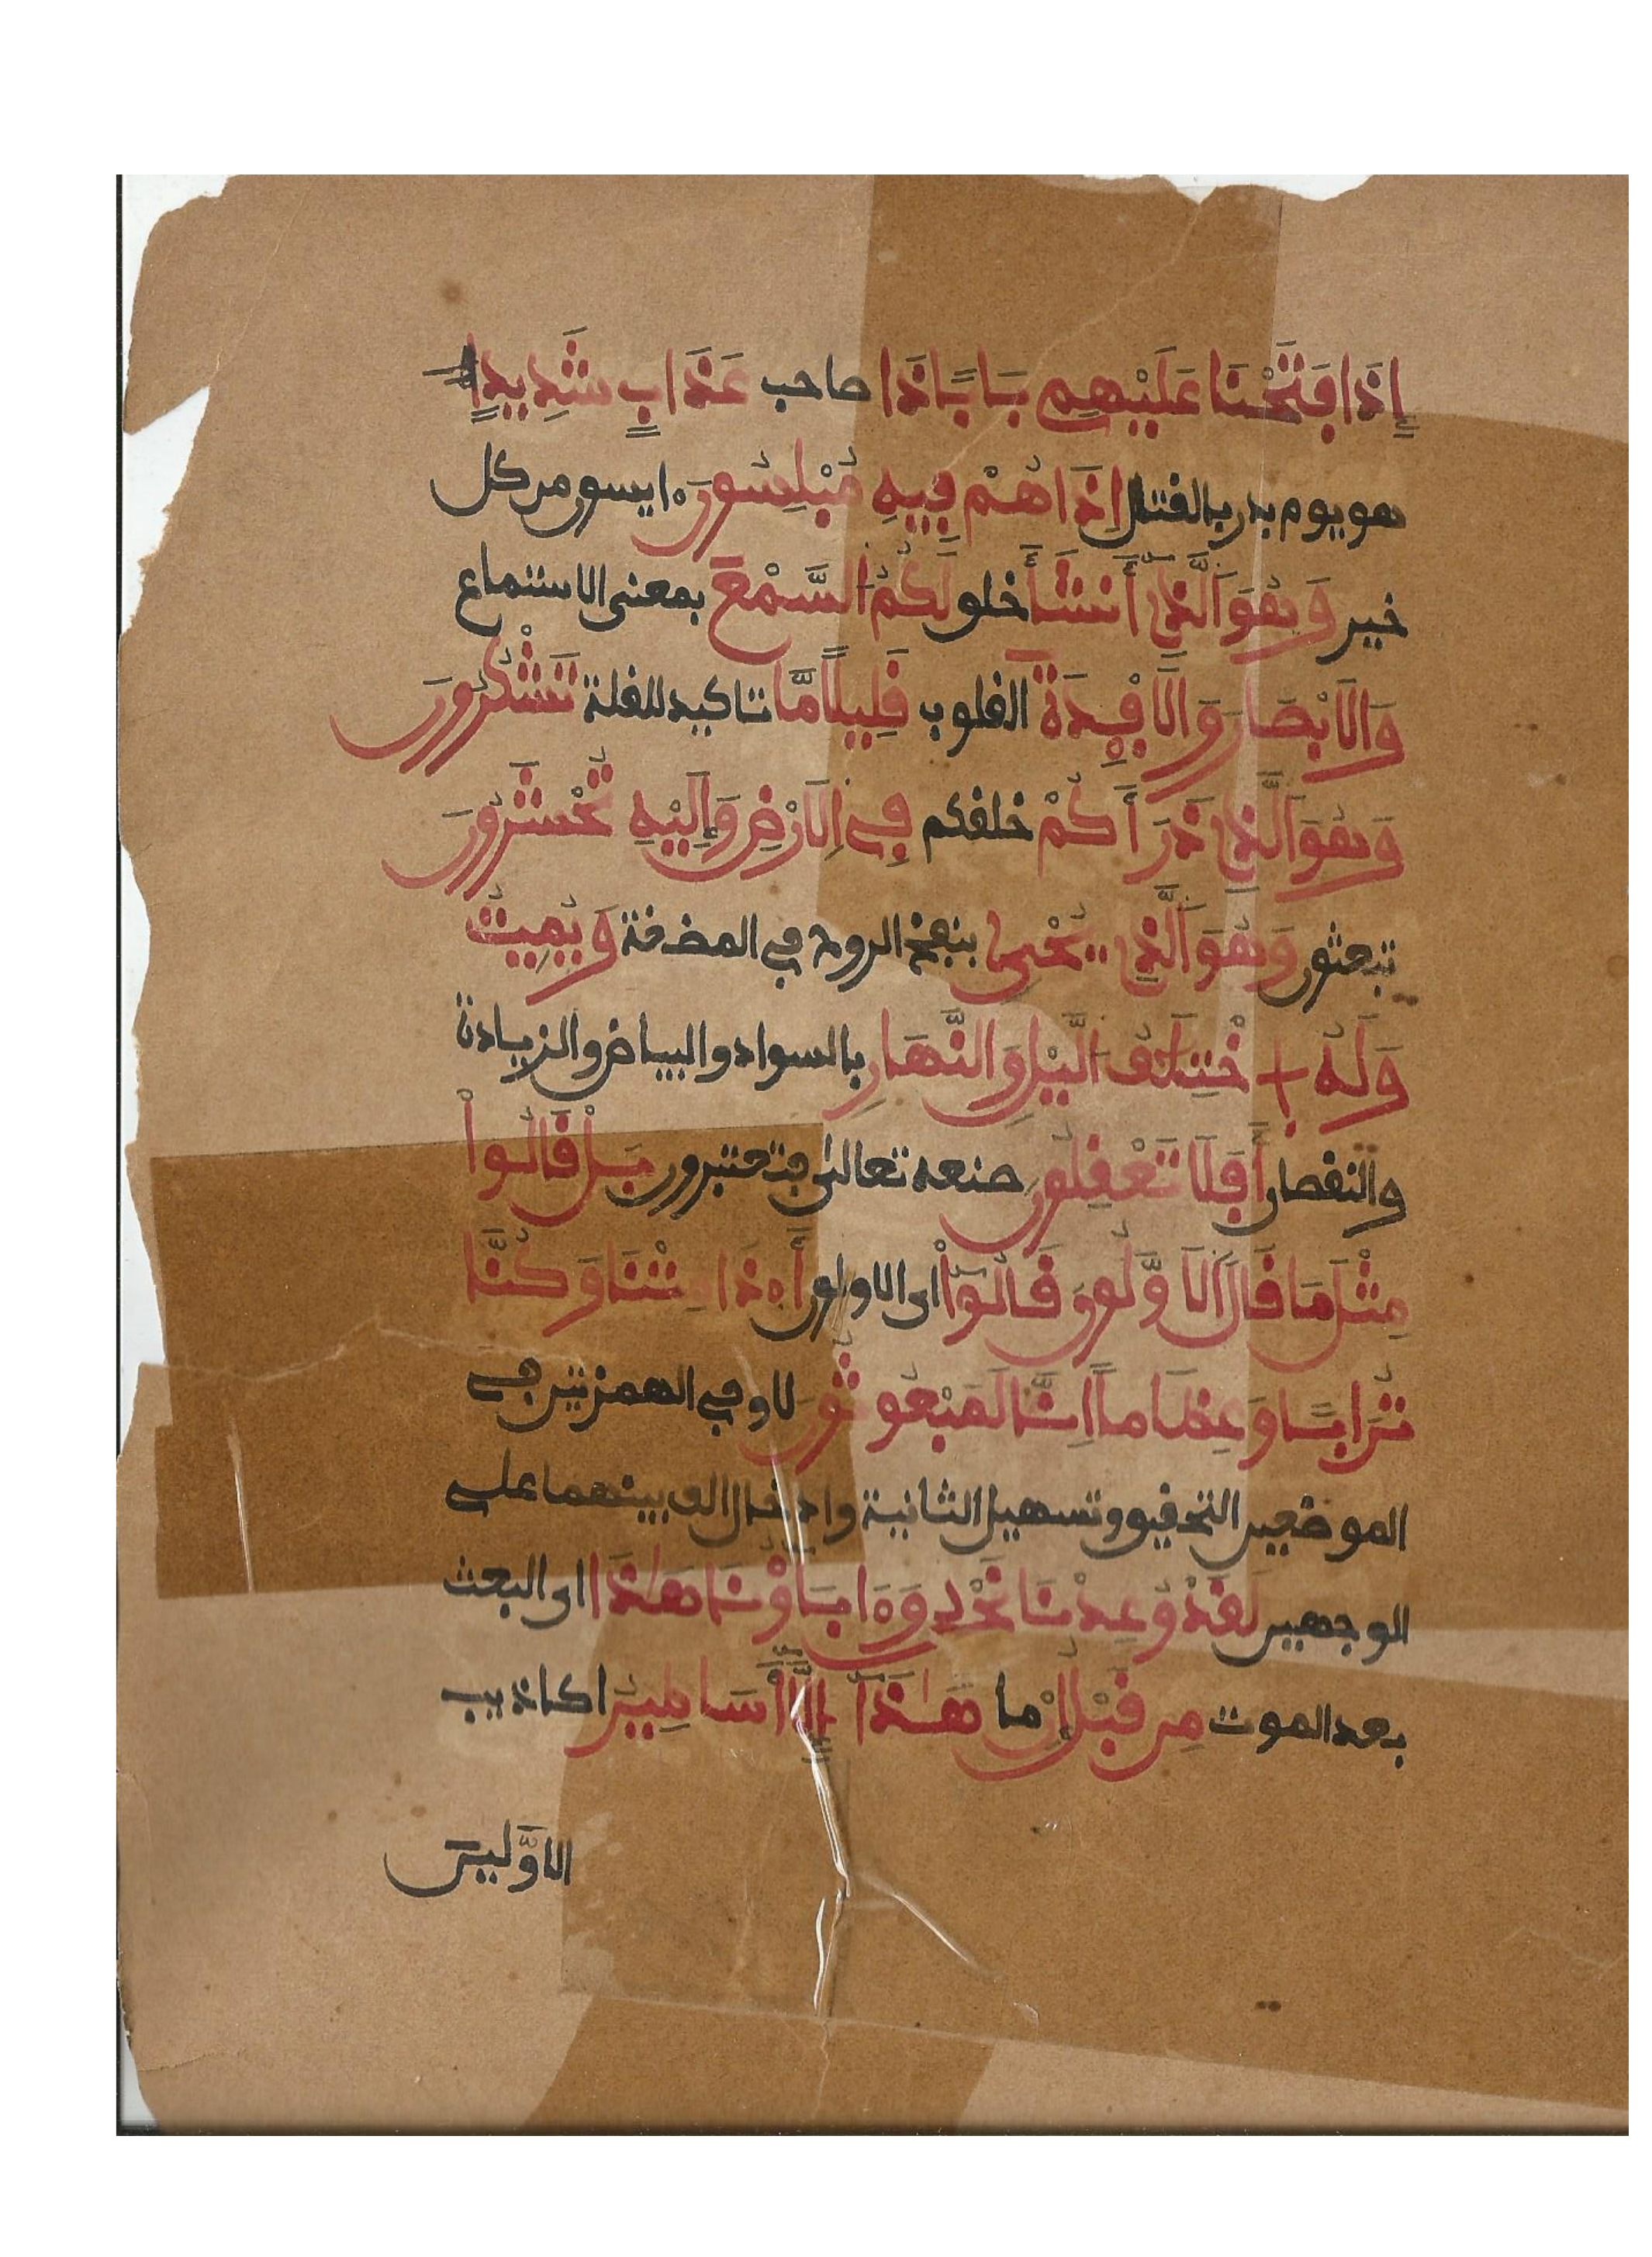 إِذَا فَتَحْنَا عَلَيْهِم بَابًا ذَا صاحب عَذَابٍ شَدِيدٍ
هو يوم بدر بالقتل إِذَا هُمْ فِيهِ مُبْلِسُونَ ءايسون من كل
خير وَهُوَ اَلَّذِى أَنشَأَ خلق لَكُمُ اُلسَّمْعَ بمعنى الاستماع
وَالَابْصَٰرَ وَالَافْـِٕدَةَ القلوب قَلِيلًا مَّا تاكيد للقلة تَشْكُرُونَ
وَهُوَ اَلَّذِى ذَرَأَكُمْ خلقكم فِى اِلَارْضِ وَإِلَيْهِ تُحْشَرُونَ
تبعثون وَهُوَ اَلَّذِى يُحْىِۦ بنفخ الروح في المضغة وَيُمِيتُ
وَلَهُ اُخْتِلَٰفُ اُلَّيْلِ وَالنَّهَارِ بالسواد والبياض والزيادة
والنقصان أَفَلَا تَعْقِلُونَ صنعه تعالى فتعتبرون بَلْ قَالُواْ
مِثْلَ مَا قَالَ اَلَاوَّلُونَ قَالُوٓاْ اى الاولون أَ۟ذَا مِتْنَا وَكُنَّا
تُرَابًا وَعِظَاماً اِنَّا لَمَبْعُوثُونَ لا وفي الهمزتين في
الموضعين التحقيق وتسهيل الثانية وادخال الف بينهما على
الوجهين لَقَدْ وُعِدْنَا نَحْنُ وَءَابَآؤُنَا هَٰذَا اى البعث
بعد الموت مِن قَبْلُ إِنْ ما هَٰذَآ إِلَّآ أَسَٰطِيرُ اكاذيب
الَاوَّلِينَ